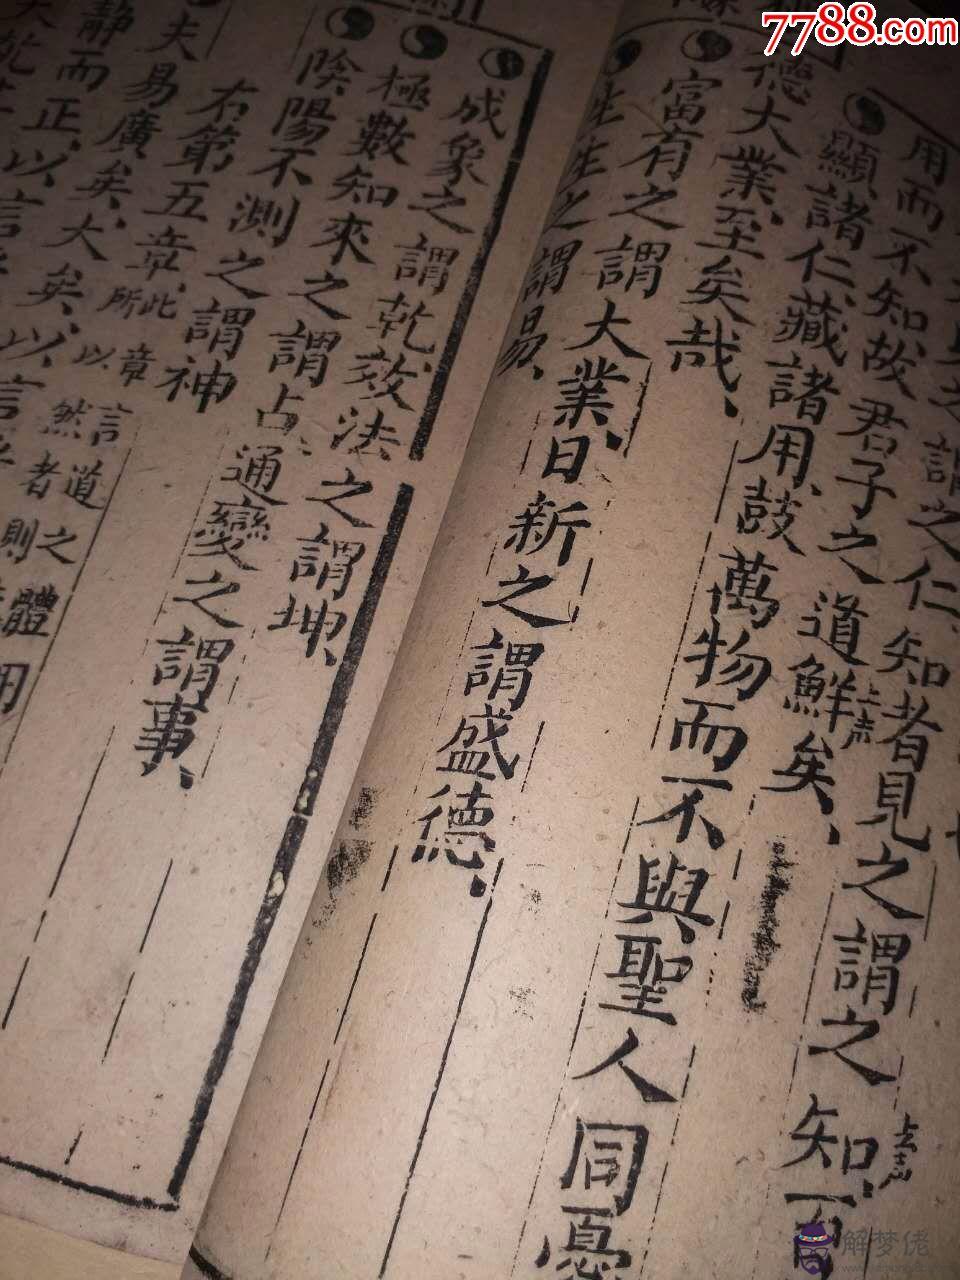 7788.com
之謂之仁、知者見之謂之知、百
用而不知、故君子之道鮮矣、
顯諸仁、藏諸用、鼓萬物而不與聖人同憂
德大業、至矣哉、
富有之謂大業、日新之謂盛德、
生生之謂易、
成象之謂乾、效法之謂坤、
極數知來之謂占、通變之謂事、
陰陽不測之謂神
右第五章、此章言道之體用
所以然者則
夫易廣矣、大矣、以言
靜而正、以言
解梦佬